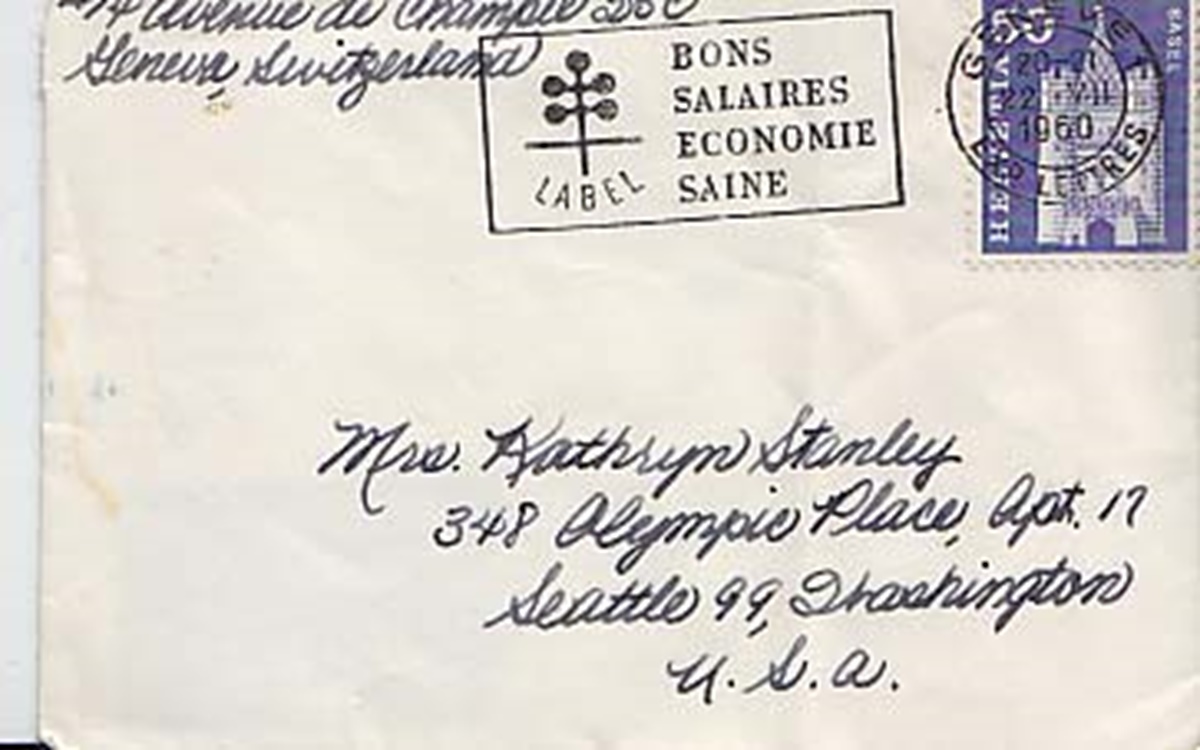 Avenue de Champel
Geneva, Switzerland
BONS
SALAIRES
ECONOMIE
SAINE
LABEL
50
HELVETIA
20-21
22. VII
1960
LETTRES
Mrs. Kathryn Stanley
348 Olympic Place, Apt. 17
Seattle 99, Washington
U.S.A.